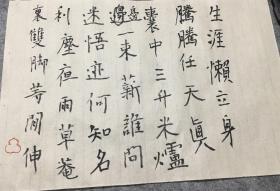 生涯懶立身
騰騰任天真
囊中三升米爐
邊一束薪誰問
迷悟迹何知名
利塵夜雨草菴
裏雙脚等閒伸